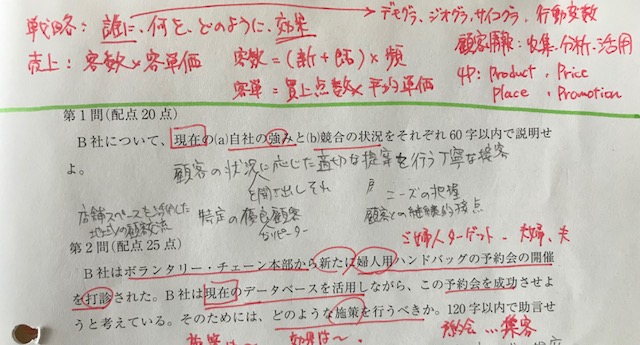 戦略：誰に、何を、どのように、効果 → デモグラ、ジオグラ、サイコグラ、行動変数
顧客情報：収集・分析・活用
売上：客数×客単価 客数＝(新＋既)×頻
客単＝買上点数×平均単価
4P：product、Price
place、Promotion
第1問(配点20点)
B社について、現在の(a)自社の強みと(b)競合の状況をそれぞれ60字以内で説明せ
よ。
顧客の状況に応じた適切な提案を行う丁寧な接客
を聞き出しそれ
ニーズの把握
店舗スペースを
特定の優良顧客
顧客との継続的接点
リピーター
第2問(配点25点)
ご婦人ターゲット - 夫婦、夫
B社はボランタリー・チェーン本部から新たに婦人用ハンドバッグの予約会の開催
を打診された。B社は現在のデータベースを活用しながら、この予約会を成功させよ
うと考えている。そのためには、どのような施策を行うべきか。120字以内で助言せ
予約会…接客
施策は〜、効果は〜、